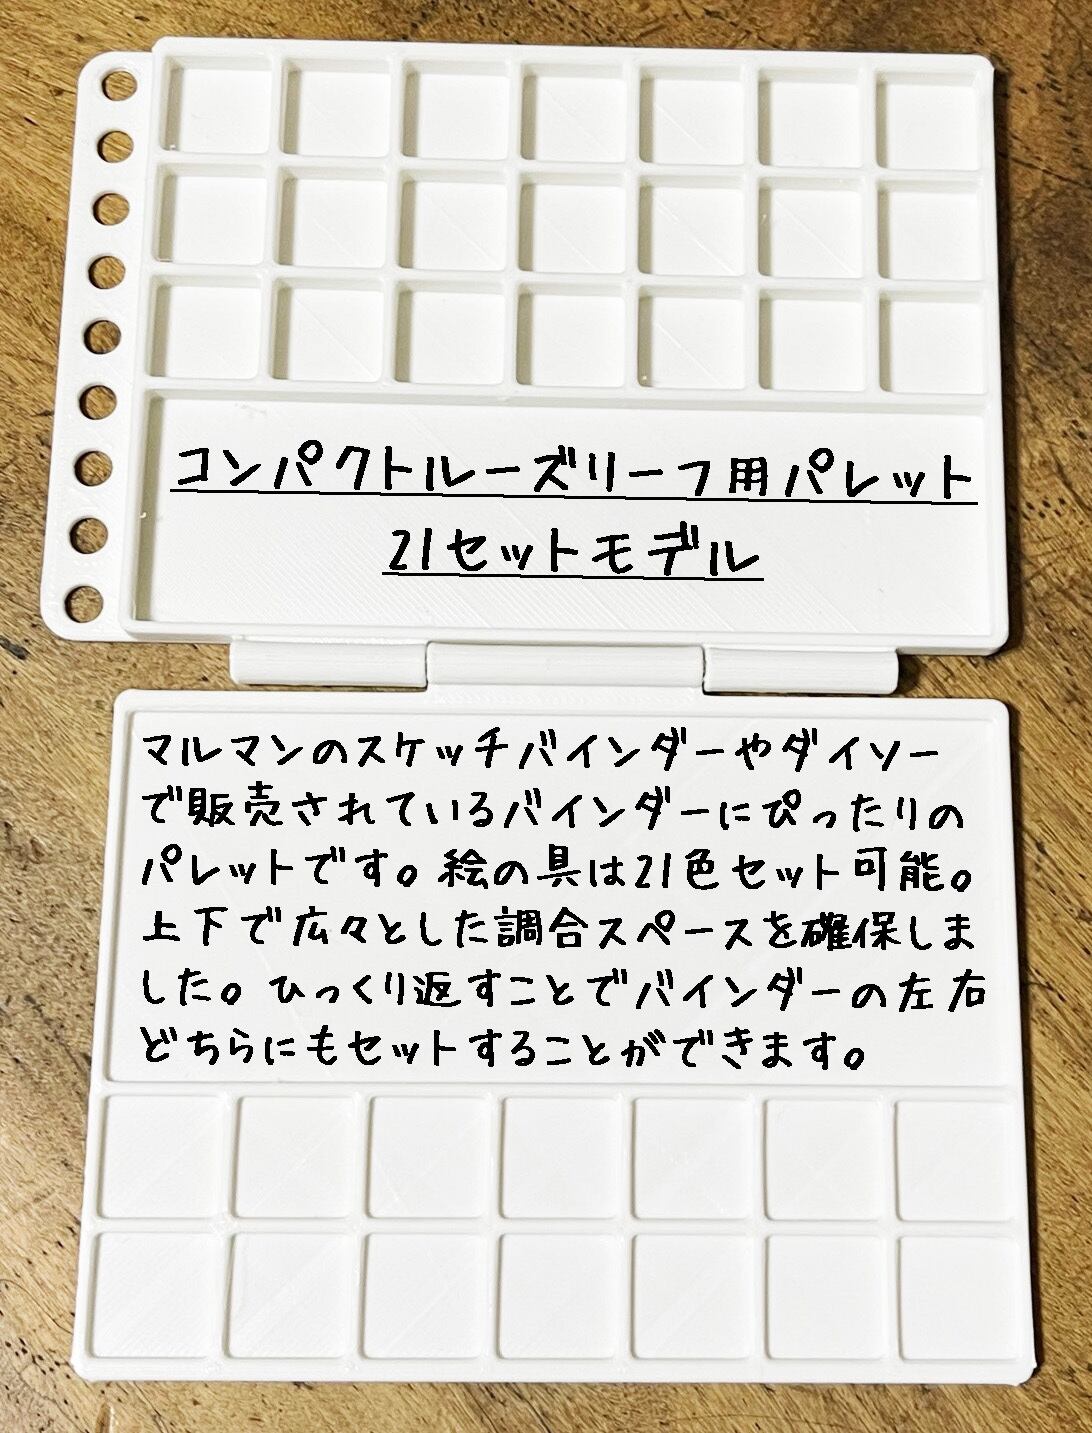 コンパクトルーズリーフ用パレット
21セットモデル
マルマンのスケッチバインダーやダイソー
で販売されているバインダーにぴったりの
パレットです。絵の具は21色セット可能。
上下で広々とした調合スペースを確保しま
した。ひっくり返すことでバインダーの左右
どちらにもセットすることができます。